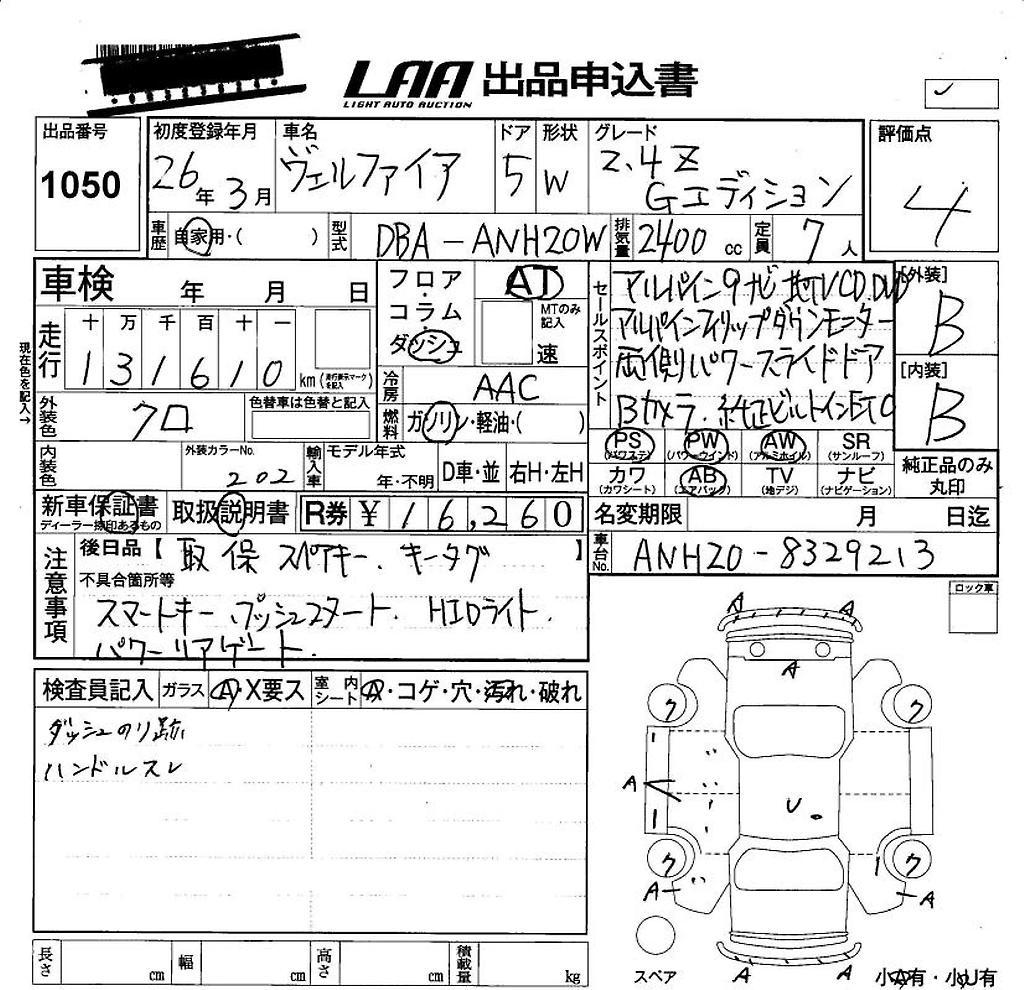 LAA 出品申込書
LIGHT AUTO AUCTION
出品番号
1050
初度登録年月
26年 3月
車名
ヴェルファイア
ドア
5
形状
W
グレード
2.4Z
Gエディション
評価点
4
車歴
自家用・( )
型式
DBA-ANH20W
排気量
2400 cc
定員
7人
車検 年 月 日
フロア・コラム・ダッシュ
AT
MTのみ記入
速
セールスポイント
アルパイン9ナビ 地TV CD DVD
アルパインフリップダウンモニター
両側パワースライドドア
Bカメラ.純正ビルトインETC
[外装]
B
[内装]
B
現在色を記入→
走行
十 万 千 百 十 一
131610 km
(走行表示マークを記入)
冷房
AAC
燃料
ガソリン・軽油・( )
外装色
クロ
色替車は色替と記入
内装色
外装カラーNo.
202
輸入車
モデル年式
年・不明
D車・並
右H・左H
PS (パワステ)
PW (パワーウインド)
AW (アルミホイル)
SR (サンルーフ)
カワ (カワシート)
AB (エアバック)
TV (地デジ)
ナビ (ナビゲーション)
純正品のみ丸印
新車保証書
取扱説明書
R券 ¥ 16,260
名変期限 月 日迄
車台No.
ANH20-8329213
注意事項
後日品【 取 保 スペアキー. キータグ 】
不具合箇所等
スマートキー.プッシュスタート. HIDライト.
パワーリアゲート.
ロック車
検査員記入
ガラス
A・X要ス
室内シート
A・コゲ・穴・汚れ・破れ
ダッシュのり跡
ハンドルスレ
A A
A
ク ク
A
U
ク ク
A A
A A
スペア
小A有・小U有
長さ cm
幅 cm
高さ cm
積載量 kg